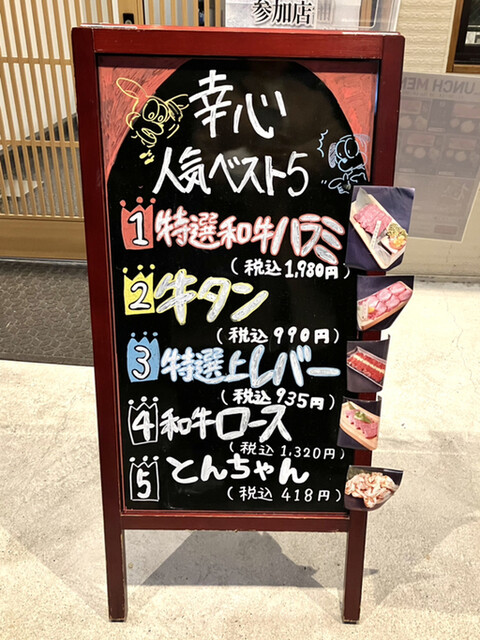 参加店
幸心
人気ベスト5
1 特選和牛ハラミ
(税込1,980円)
2 牛タン
(税込990円)
3 特選上レバー
(税込935円)
4 和牛ロース
(税込1,320円)
5 とんちゃん
(税込418円)
UNCH MEN